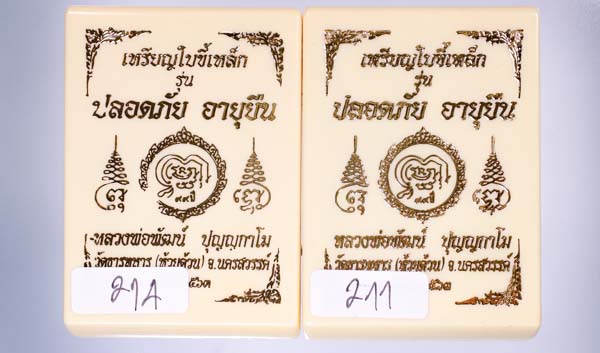 เหรียญใบขี้เหล็ก
รุ่น
ปลอดภัย อายุยืน
๙๙ปี
หลวงพ่อพัฒน์ ปุญฺญกาโม
วัดธารทหาร (ห้วยด้วน) จ.นครสวรรค์
๕๖๓
214
เหรียญใบขี้เหล็ก
รุ่น
ปลอดภัย อายุยืน
๙๙ปี
หลวงพ่อพัฒน์ ปุญฺญกาโม
วัดธารทหาร (ห้วยด้วน) จ.นครสวรรค์
๕๖๓
211